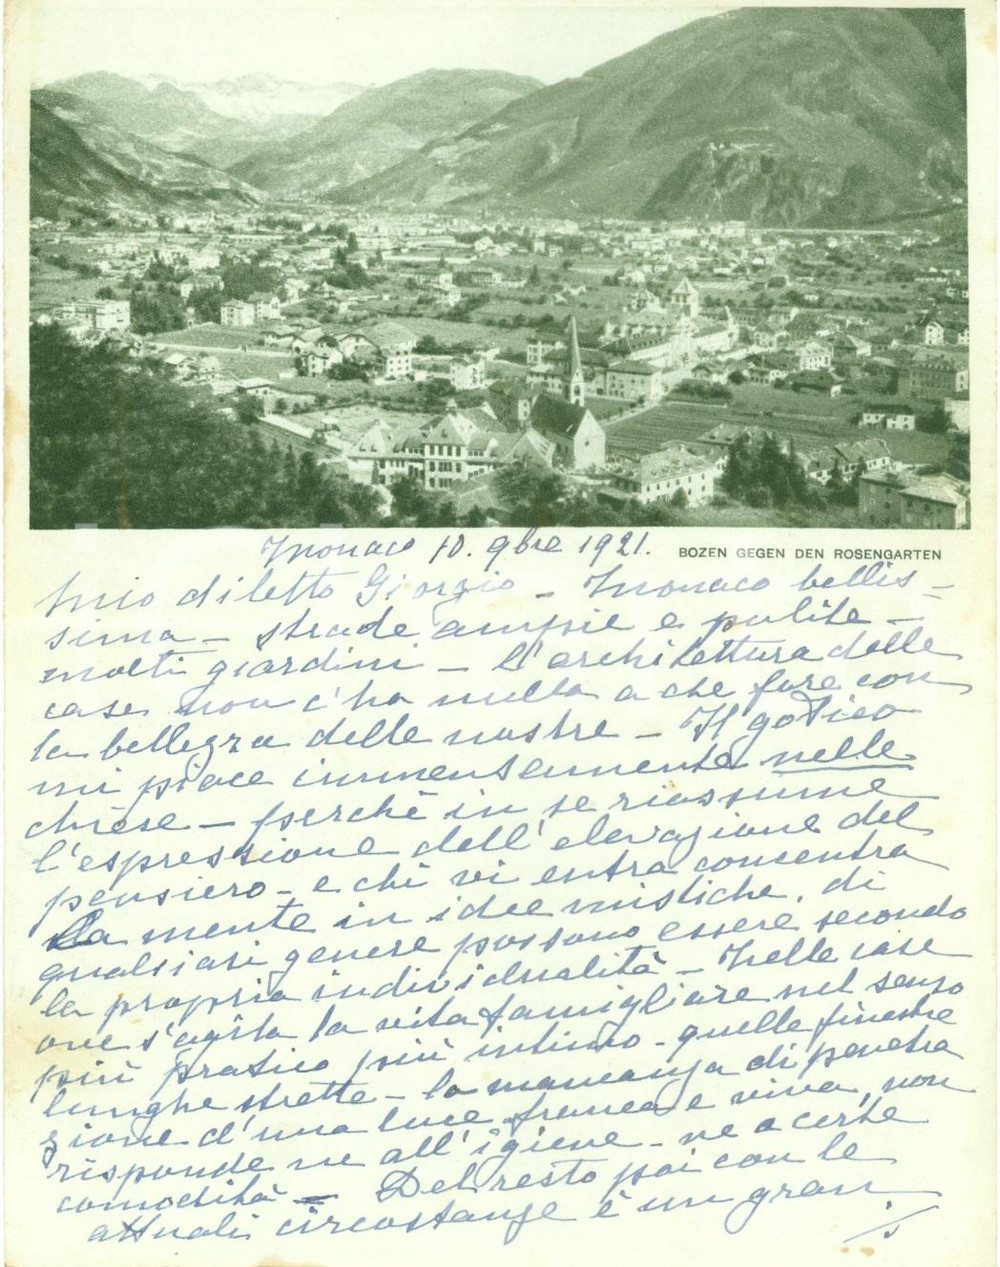 Monaco 10. 9bre 1921.
BOZEN GEGEN DEN ROSENGARTEN
Mio diletto Giorgio - Monaco bellis-
sima - strade ampie e pulite -
molti giardini - L'architettura delle
case non c'ha nulla a che fare con
la bellezza delle nostre - Il gotico
mi piace immensamente nelle
chiese - perchè in se riassume
l'espressione dell'elevazione del
pensiero - e chi vi entra concentra
la mente in idee mistiche, di
qualsiasi genere possano essere secondo
la propria individualità - Nelle case
ove s'agita la vita famigliare nel senso
più pratico più intimo - quelle finestre
lunghe strette - la mancanza di penetra
zione d'una luce franca e viva, non
risponde ne all'igiene - ne a certe
comodità - Del resto poi con le
attuali circostanze è un gran